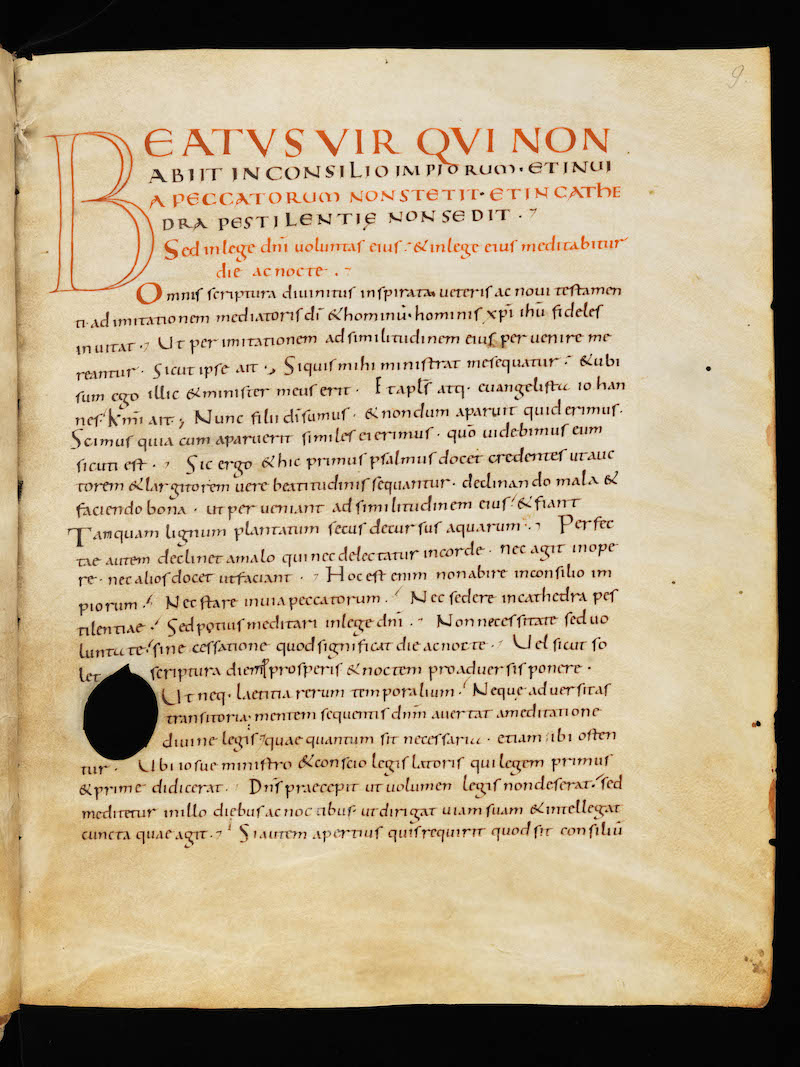 9.
BEATVS VIR QVI NON
ABIIT IN CONSILIO IMPIORUM · ET IN UI
A PECCATORUM NON STETIT · ET IN CATHE
DRA PESTILENTIĘ NON SEDIT ·
Sed in lege dn̄i uoluntas eius · & in lege eius meditabitur
die ac nocte ·
Omnis scriptura diuinitus inspirata ueteris ac noui testamen
ti · ad imitationem mediatoris dī & hominū · hominis xp̄i ihū fideles
inuitat · Ut per imitationem ad similitudinem eius peruenire me
reantur · Sicut ipse ait · Si quis mihi ministrat me sequatur · & ubi
sum ego illic & minister meus erit · Et apls̄ atq · euangelista iohan
nes · mi ait · Nunc filii dī sumus · & nondum aparuit quid erimus ·
Scimus quia cum aparuerit similes ei erimus · quō uidebimus eum
sicuti est · Sic ergo & hic primus psalmus docet credentes ut auc
torem & largitorem uere beatitudinis sequantur · declinando mala &
faciendo bona · ut perueniant ad similitudinem eius · & fiant
Tamquam lignum plantatum secus decursus aquarum · Perfec
tae autem declinet a malo qui nec delectatur in corde · nec agit in ope
re · nec alios docet ut faciant · Hoc est enim non abire in consilio im
piorum · Nec stare in uia peccatorum · Nec sedere in cathedra pes
tilentiae · Sed potius meditari in lege dn̄i · Non necessitate sed uo
luntate · sine cessatione quod significat die ac nocte · Uel sicut so
let scriptura diem prosperis & noctem pro aduersis ponere ·
Ut neq · laetitia rerum temporalium · Neque aduersitas
transitoria · mentem sequentis dn̄m auertat a meditatione
diuine legis · quae quantum sit necessaria · etiam ibi osten
tur · Ubi iosue ministro & conscio legislatoris qui legem primus
& prime didicerat · Dn̄s praecepit ut uolumen legis non deserat · sed
meditetur in illo diebus ac noctibus · ut dirigat uiam suam & intellegat
cuncta quae agit · Si autem apertius quis requirit quod sit consiliū